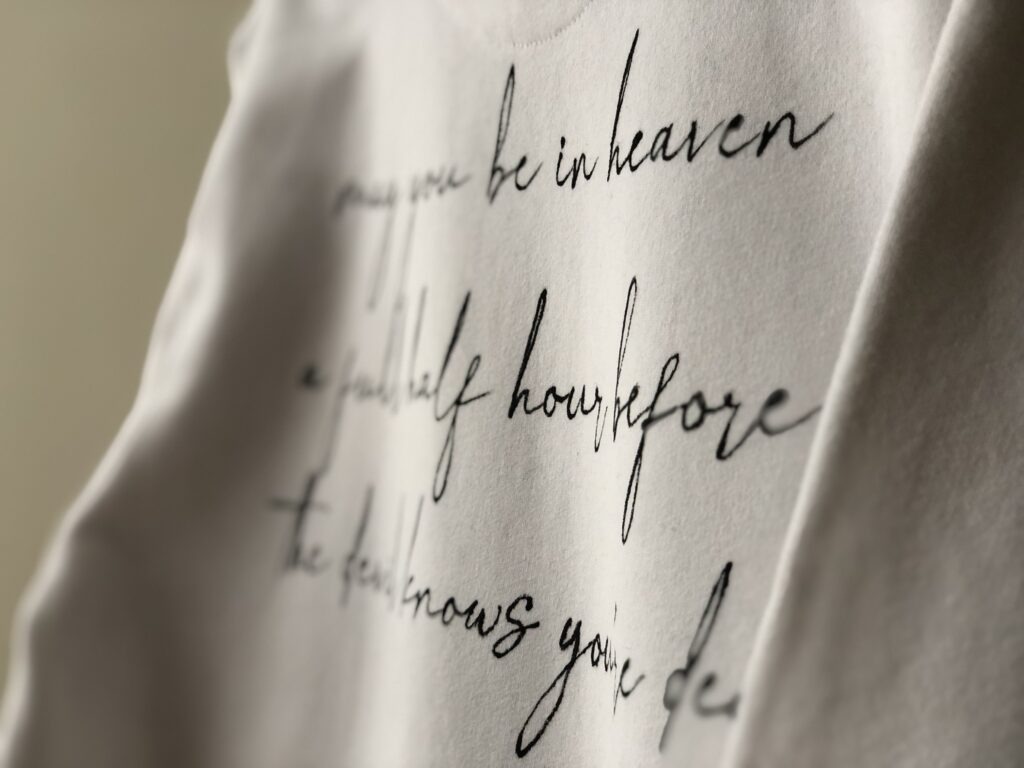 may you be in heaven
a full half hour before
the devil knows you're de